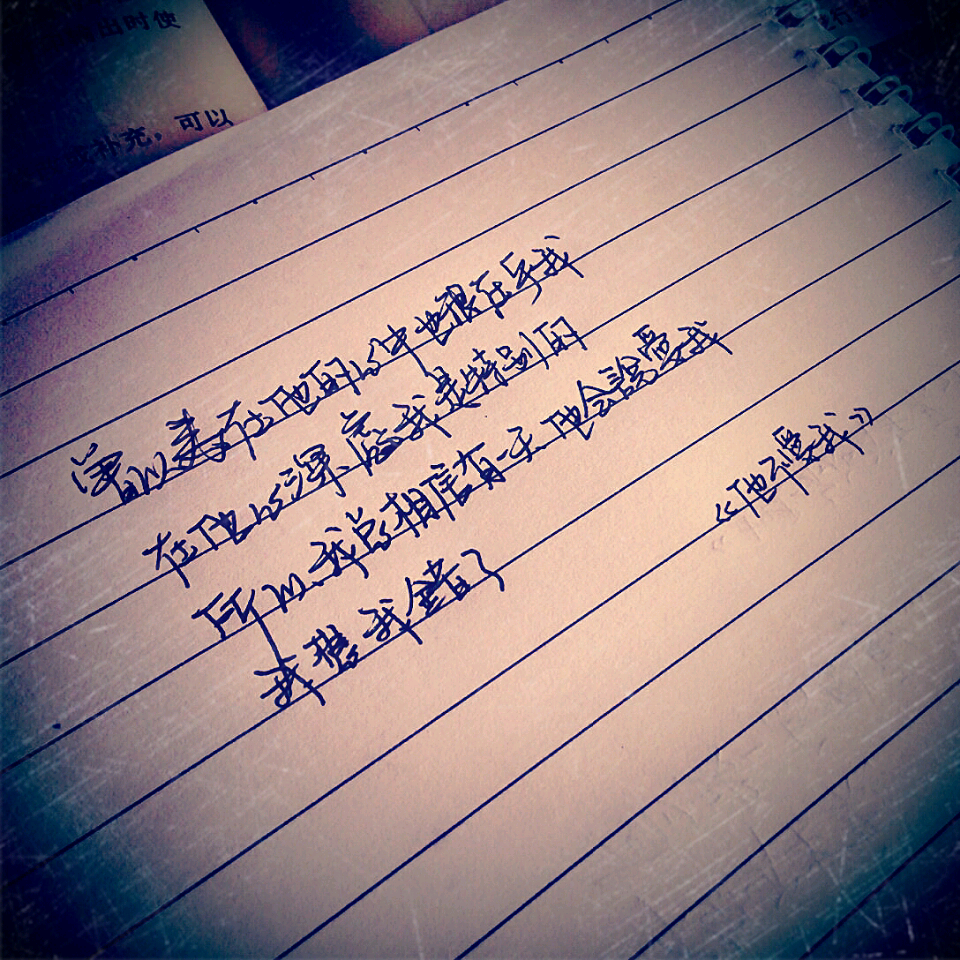 出时使
补充，可以
曾以為在他的心中也很在乎我
在他心深處我是特别的
所以、我总相信有一天他会說愛我
我想我錯了
《他不愛我》